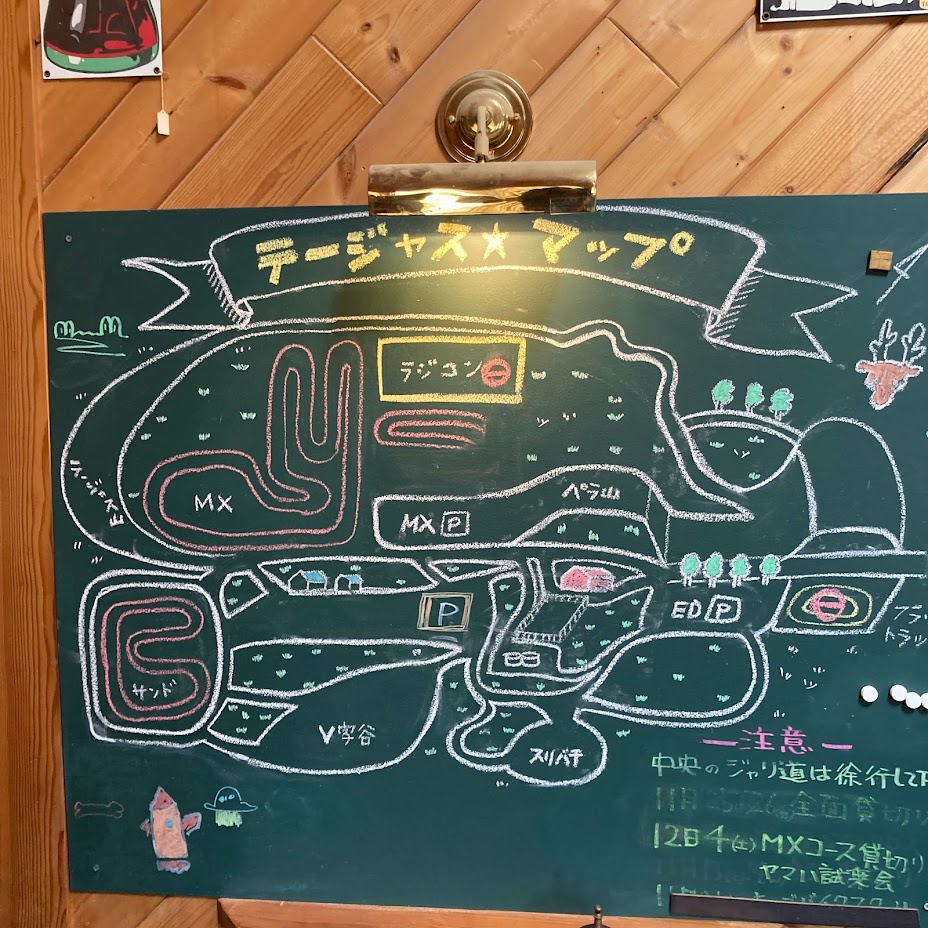 テージャス★マップ
ラジコン
MX
MX P
ペラ山
P
ED P
フラ
トラッ
サンド
V字谷
スリバチ
ー注意ー
中央のジャリ道は徐行して
全面貸切り
12日4(土)MXコース貸切り
ヤマハ試乗会